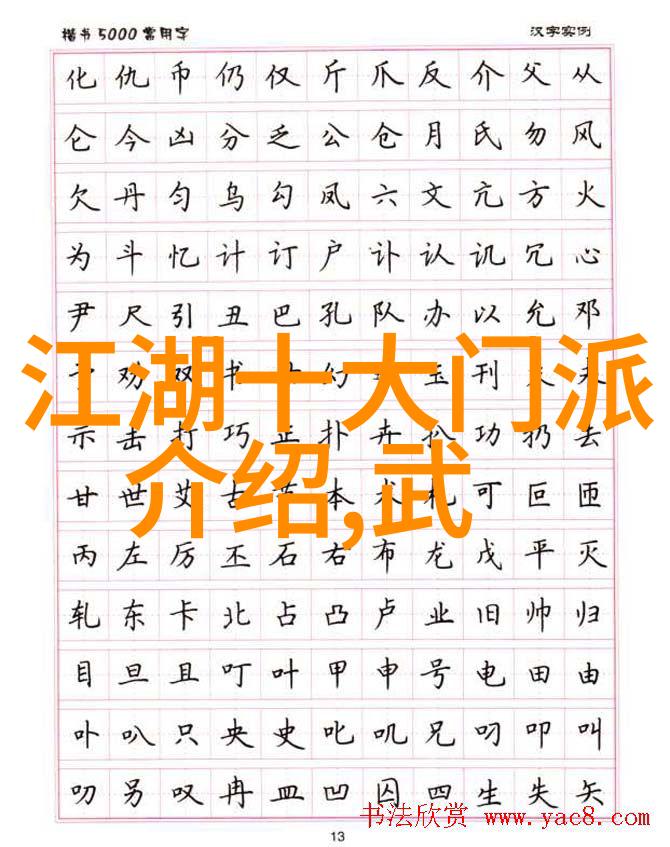 楷书5000常用字 汉字实例
化 仇 币 仍 仅 斤 爪 反 介 父 从
仑 今 凶 分 乏 公 仓 月 氏 勿 风
欠 丹 匀 乌 勾 凤 六 文 亢 方 火
为 斗 忆 计 订 户 讣 认 讥 冗 心
尹 尺 引 丑 巴 孔 队 办 以 允 邓
劝 双 书 幻 玉 刊
江湖十大门派
示 击 打 巧 正 扑 卉 扒 功 扔 去
介绍,武
甘 世 艾 古 本 术 札 可 叵 匝
丙 左 厉 丕 石 右 布 龙 戊 平 灭
轧 东 卡 北 占 凸 卢 业 旧 帅 归
目 旦 且 叮 叶 甲 申 号 电 田 由
卟 叭 只 央 史 叱 叽 兄 叼 叩 叫
叻 另 叹 冉 皿 凹 囚 四 生 失 矢
书法欣赏 www.yac8.com
13